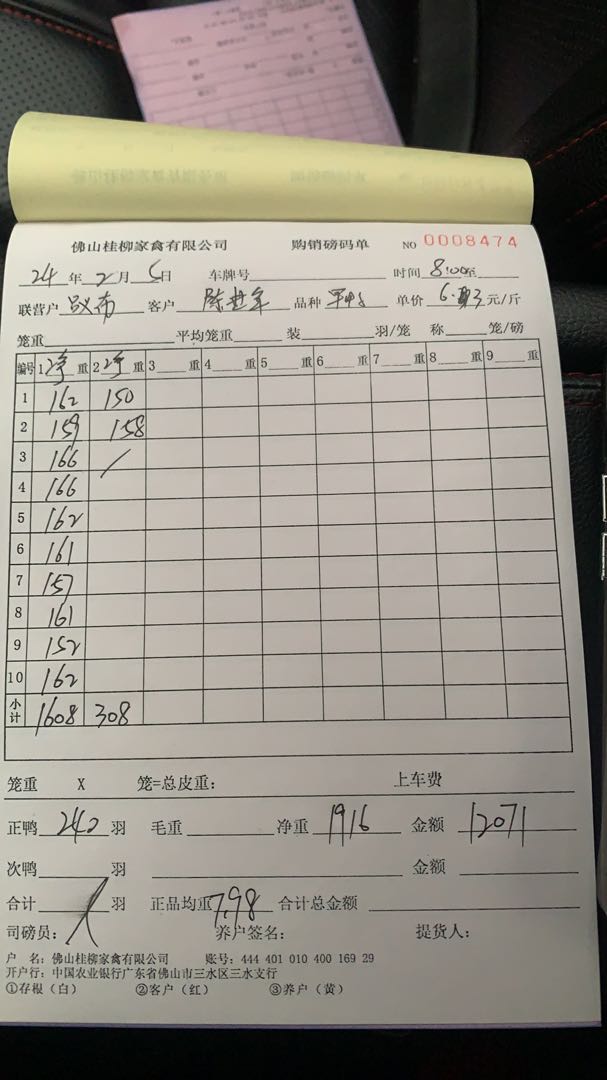 佛山桂柳家禽有限公司 购销磅码单 NO 0008474
24年2月5日 车牌号 时间 8:00至
联营户 客户 品种 单价 元/斤
笼重 平均笼重 装 羽/笼 称 笼/磅
编号 1净重 2净重 3重 4重 5重 6重 7重 8重 9重
1 162 150
2 159 158
3 166 /
4 166
5 162
6 161
7 157
8 161
9 152
10 162
小计 1608 308
笼重 X 笼=总皮重: 上车费
正鸭 240 羽 毛重 净重 1916 金额 12071
次鸭 羽 金额
合计 羽 正品均重 7.98 合计总金额
司磅员: 养户签名: 提货人:
户 名: 佛山桂柳家禽有限公司 账号: 444 401 010 400 169 29
开户行: 中国农业银行广东省佛山市三水区三水支行
①存根(白) ②客户(红) ③养户(黄)